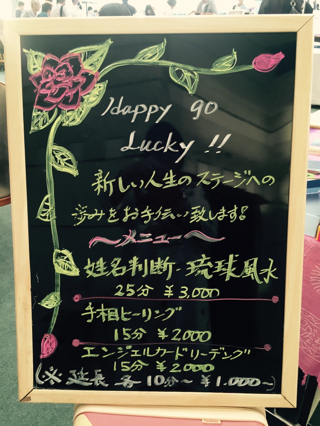 Happy go
Lucky !!
新しい人生のステージへの
歩みをお手伝い致します。
〜メニュー〜
姓名判断・琉球風水
25分 ¥3,000
手相ヒーリング
15分 ¥2000
エンジェルカードリーディング
15分 ¥2000
(※ 延長 各10分〜¥1,000-)